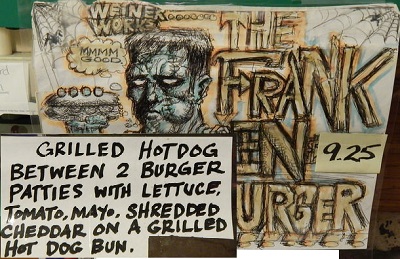 WEINER
WORKS
MMMM
GOOD
THE
FRANK
EN
9.25
URGER
GRILLED HOTDOG
BETWEEN 2 BURGER
PATTIES WITH LETTUCE,
TOMATO, MAYO. SHREDDED
CHEDDAR ON A GRILLED
HOT DOG BUN.